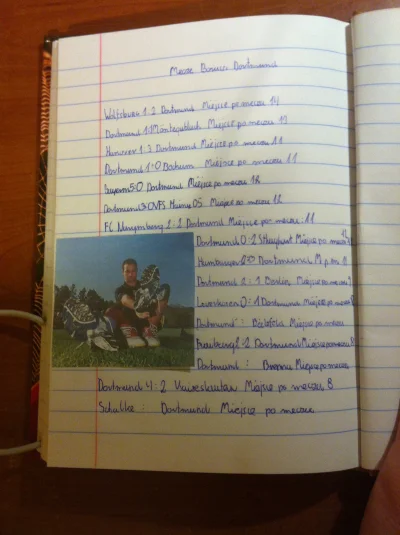 Mecze Borusi Dortmund
Wolfsburg 1:2 Dortmund Miejsce po meczu 14
Dortmund 1:1 Miejsce po meczu
Hanover 1:3 Dortmund Miejsce po meczu 11
Dortmund 1:0 Bochum Miejsce po meczu 11
Bayern 5:0 Dortmund Miejsce po meczu 12
Dortmund 3:0 VFS Mainz 05 Miejsce po meczu 12
FC Nurnberg 2:2 Dortmund Miejsce po meczu 11
Dortmund 0:2 Stuttgart Miejsce po meczu
Hamburger Dortmund M p m
Dortmund 2:1 Berlin Miejsce po meczu 9
Leverkusen 0:1 Dortmund Miejsce po meczu 8
Dortmund : Bielefeld Miejsce po meczu
Freiburg 2:2 Dortmund Miejsce po meczu 8
Dortmund : Miejsce po meczu
Dortmund 4:2 Kaiserslautern Miejsce po meczu 8
Schalke : Dortmund Miejsce po meczu